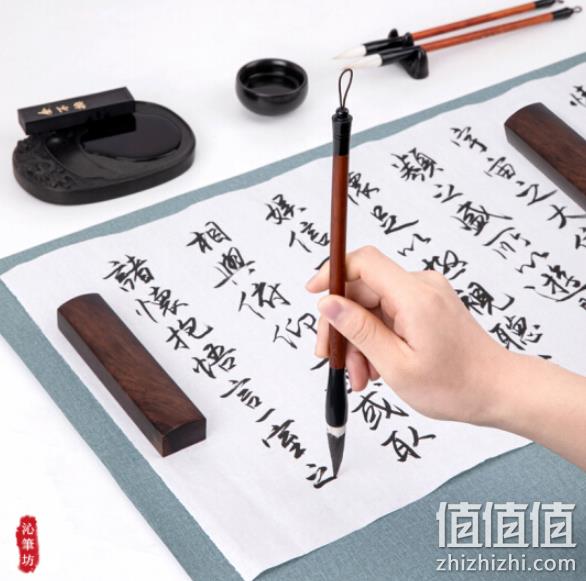 宇宙之大
類之盛所以遊
懷足以極視聽
娛信
相與俯仰
或取
諸懷抱悟言一室之
沁筆坊
值值值
zhizhizhi.com